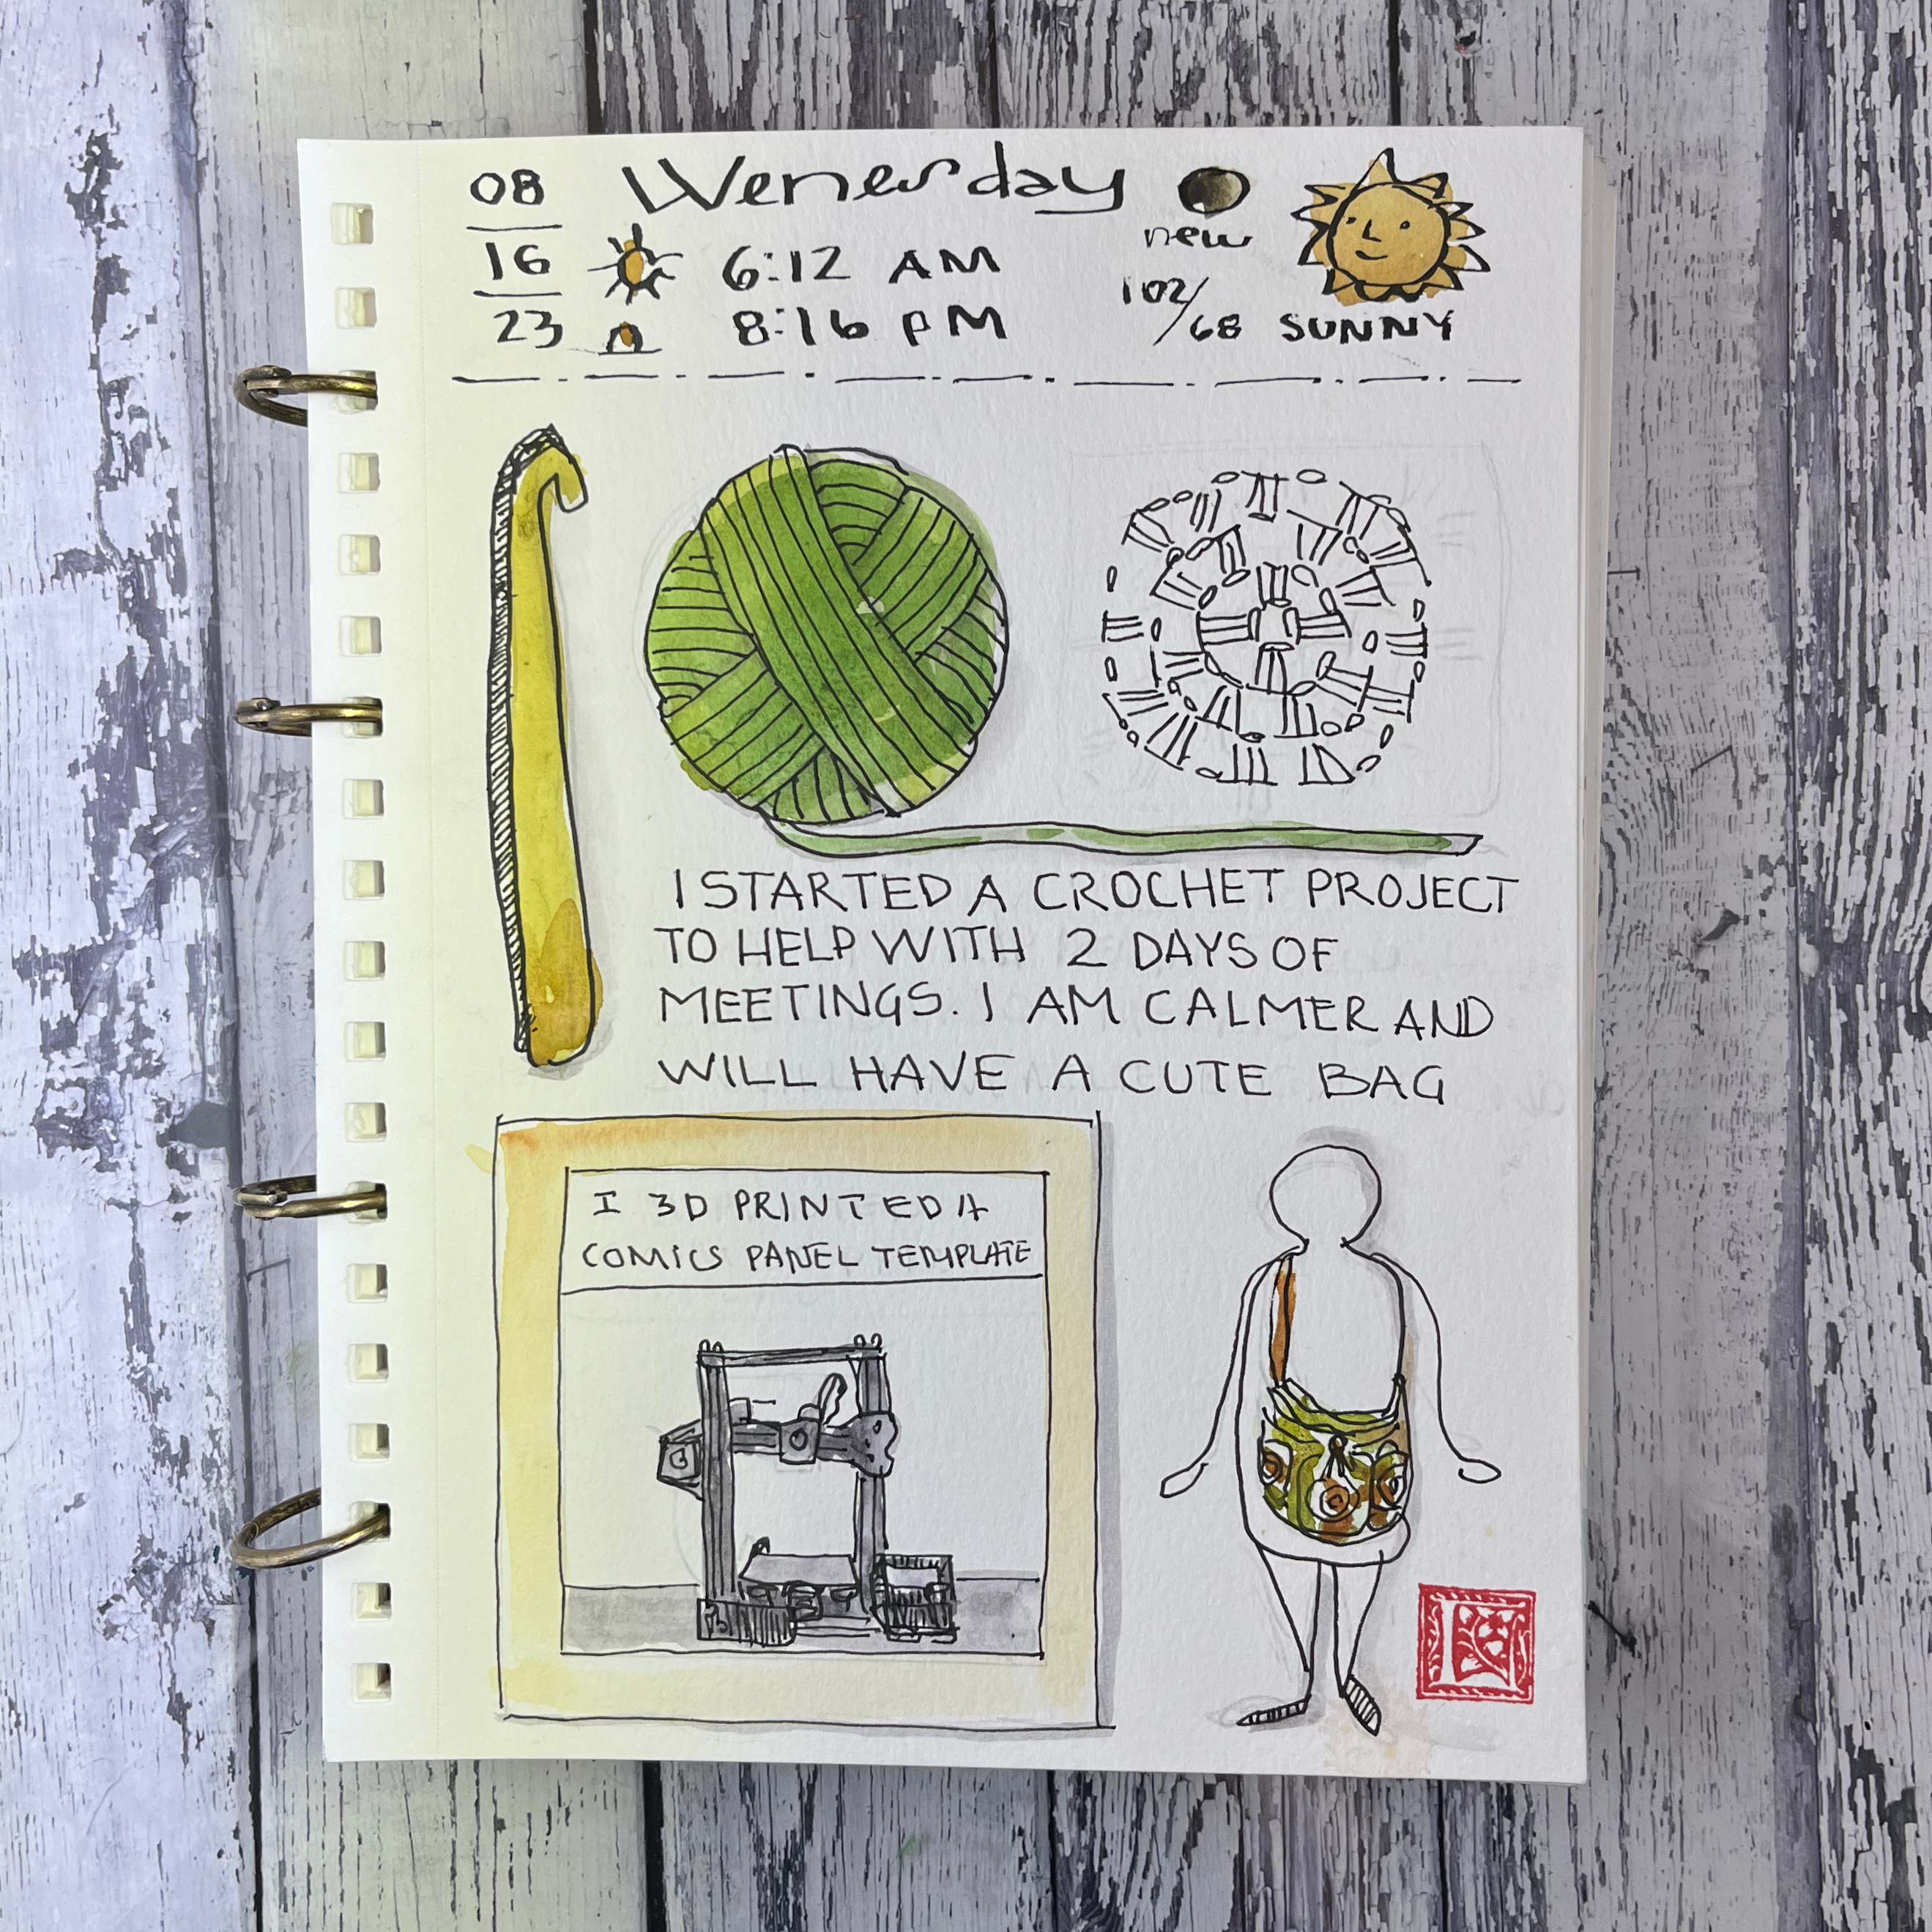 08
16
23
Wenesday
6:12 AM
8:16 PM
new
102/68 SUNNY
I STARTED A CROCHET PROJECT
TO HELP WITH 2 DAYS OF
MEETINGS. I AM CALMER AND
WILL HAVE A CUTE BAG
I 3D PRINTED A
COMICS PANEL TEMPLATE